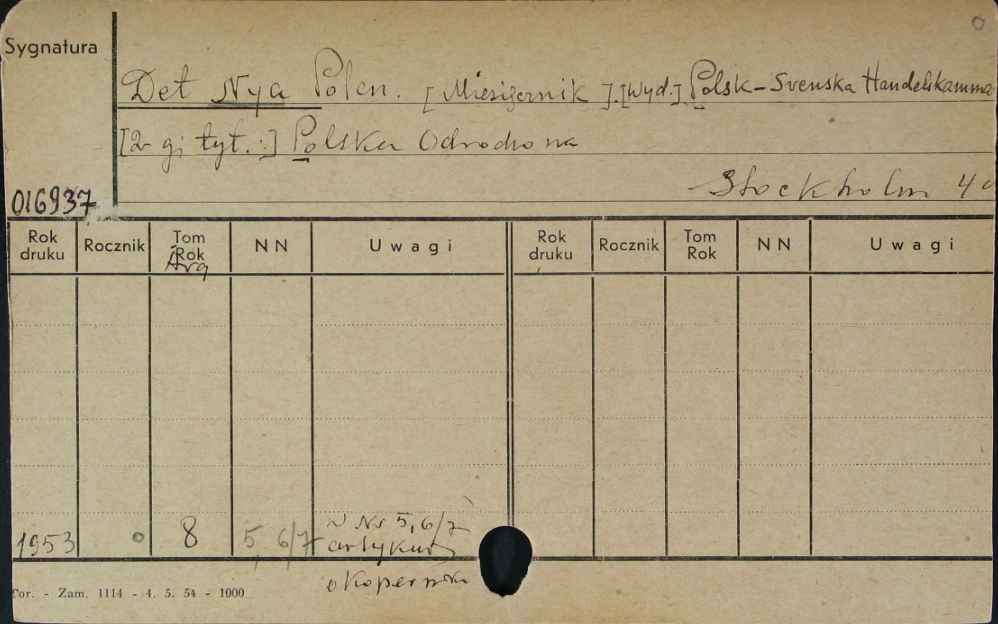 Sygnatura
Det Nya Polen. [Miesięcznik].[Wyd.] Polsk-Svenska Handelskamma
[2-gi tyt.:] Polska Odrodzona
Stockholm 4°
016937
Rok druku Rocznik Tom Rok NN Uwagi Rok druku Rocznik Tom Rok NN Uwagi
Årg
1953 8 5, 6/7 w Nr 5, 6/7
artykuły
o Koperniku
Tor. - Zam. 1114 - 4. 5. 54 - 1000